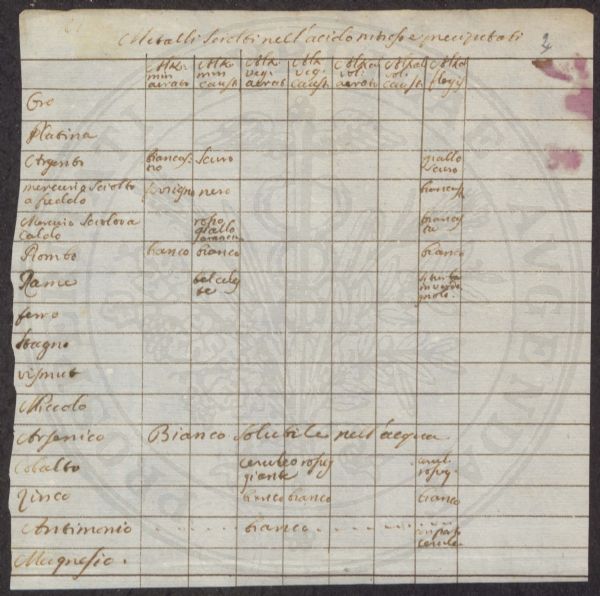 Metalli sciolti nell'acido nitroso e precipitati
Alk: min aerato Alk min caust Alk veg: aerato Alk veg: caust Alkali vol: aerato Alkali vol: caust Alkal flogis
Oro
Platina
Argento biancas:no scuro giallo scuro
mercurio sciolto a freddo nero biancas
Mercurio sciolto a caldo rosso giallo biancas
Piombo bianco bianco bianco
Rame bel celeste
ferro
stagno
vismut
Niccolo
Arsenico Bianco solubile nell'acqua
Cobalto ceruleo rosseggiante cerul: rosseg:
Zinco bianco bianco bianco
Antimonio bianco
Magnesio.